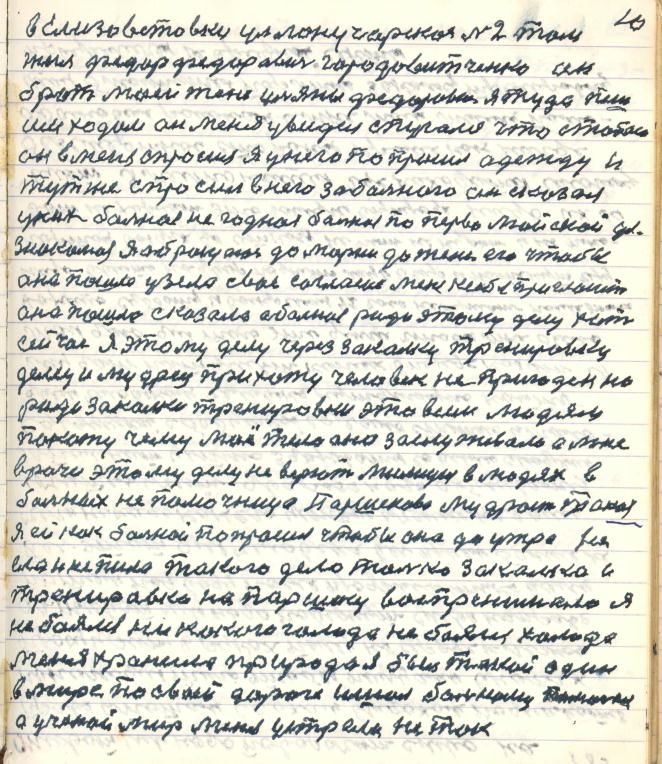 10
в Елизоветовки ул лоначарская №2 там
жил федор федарович городовитченко он
брат маей жене уляны федоровны я туда при
шел ходом он меня увидел спугался что стобою
он в меня спросил я унего попросил адежду и
тут же спросил внего забалного он сказал
у них балная не годная балная по перво майской ул.
знакомая я обращаюс до марии до жены его чтобы
она пошла узела свае согласие мене к себе пригласить
она пошла сказала абалная рада этому делу хоть
сейчас я этому делу через закалку тренировку
делец и мудрец прихожу человек не пригоден но
ради закалки тренировки это всем людям
покажу чему маё тело оно заслужевало а мне
врачи этому делу не верют милиция в людях в
балных не помочница Паршекова мудрост такая
я ей как балной попросил чтобы она до утра не
ела не пила такого дела толко закалка и
тренировка на паршку воспренимала я
не баялся ни какого голода не баялся холода
меня хранила природа я был такой один
в мире по своей дароге шел балному помочь
а ученой мир меня устретил не так